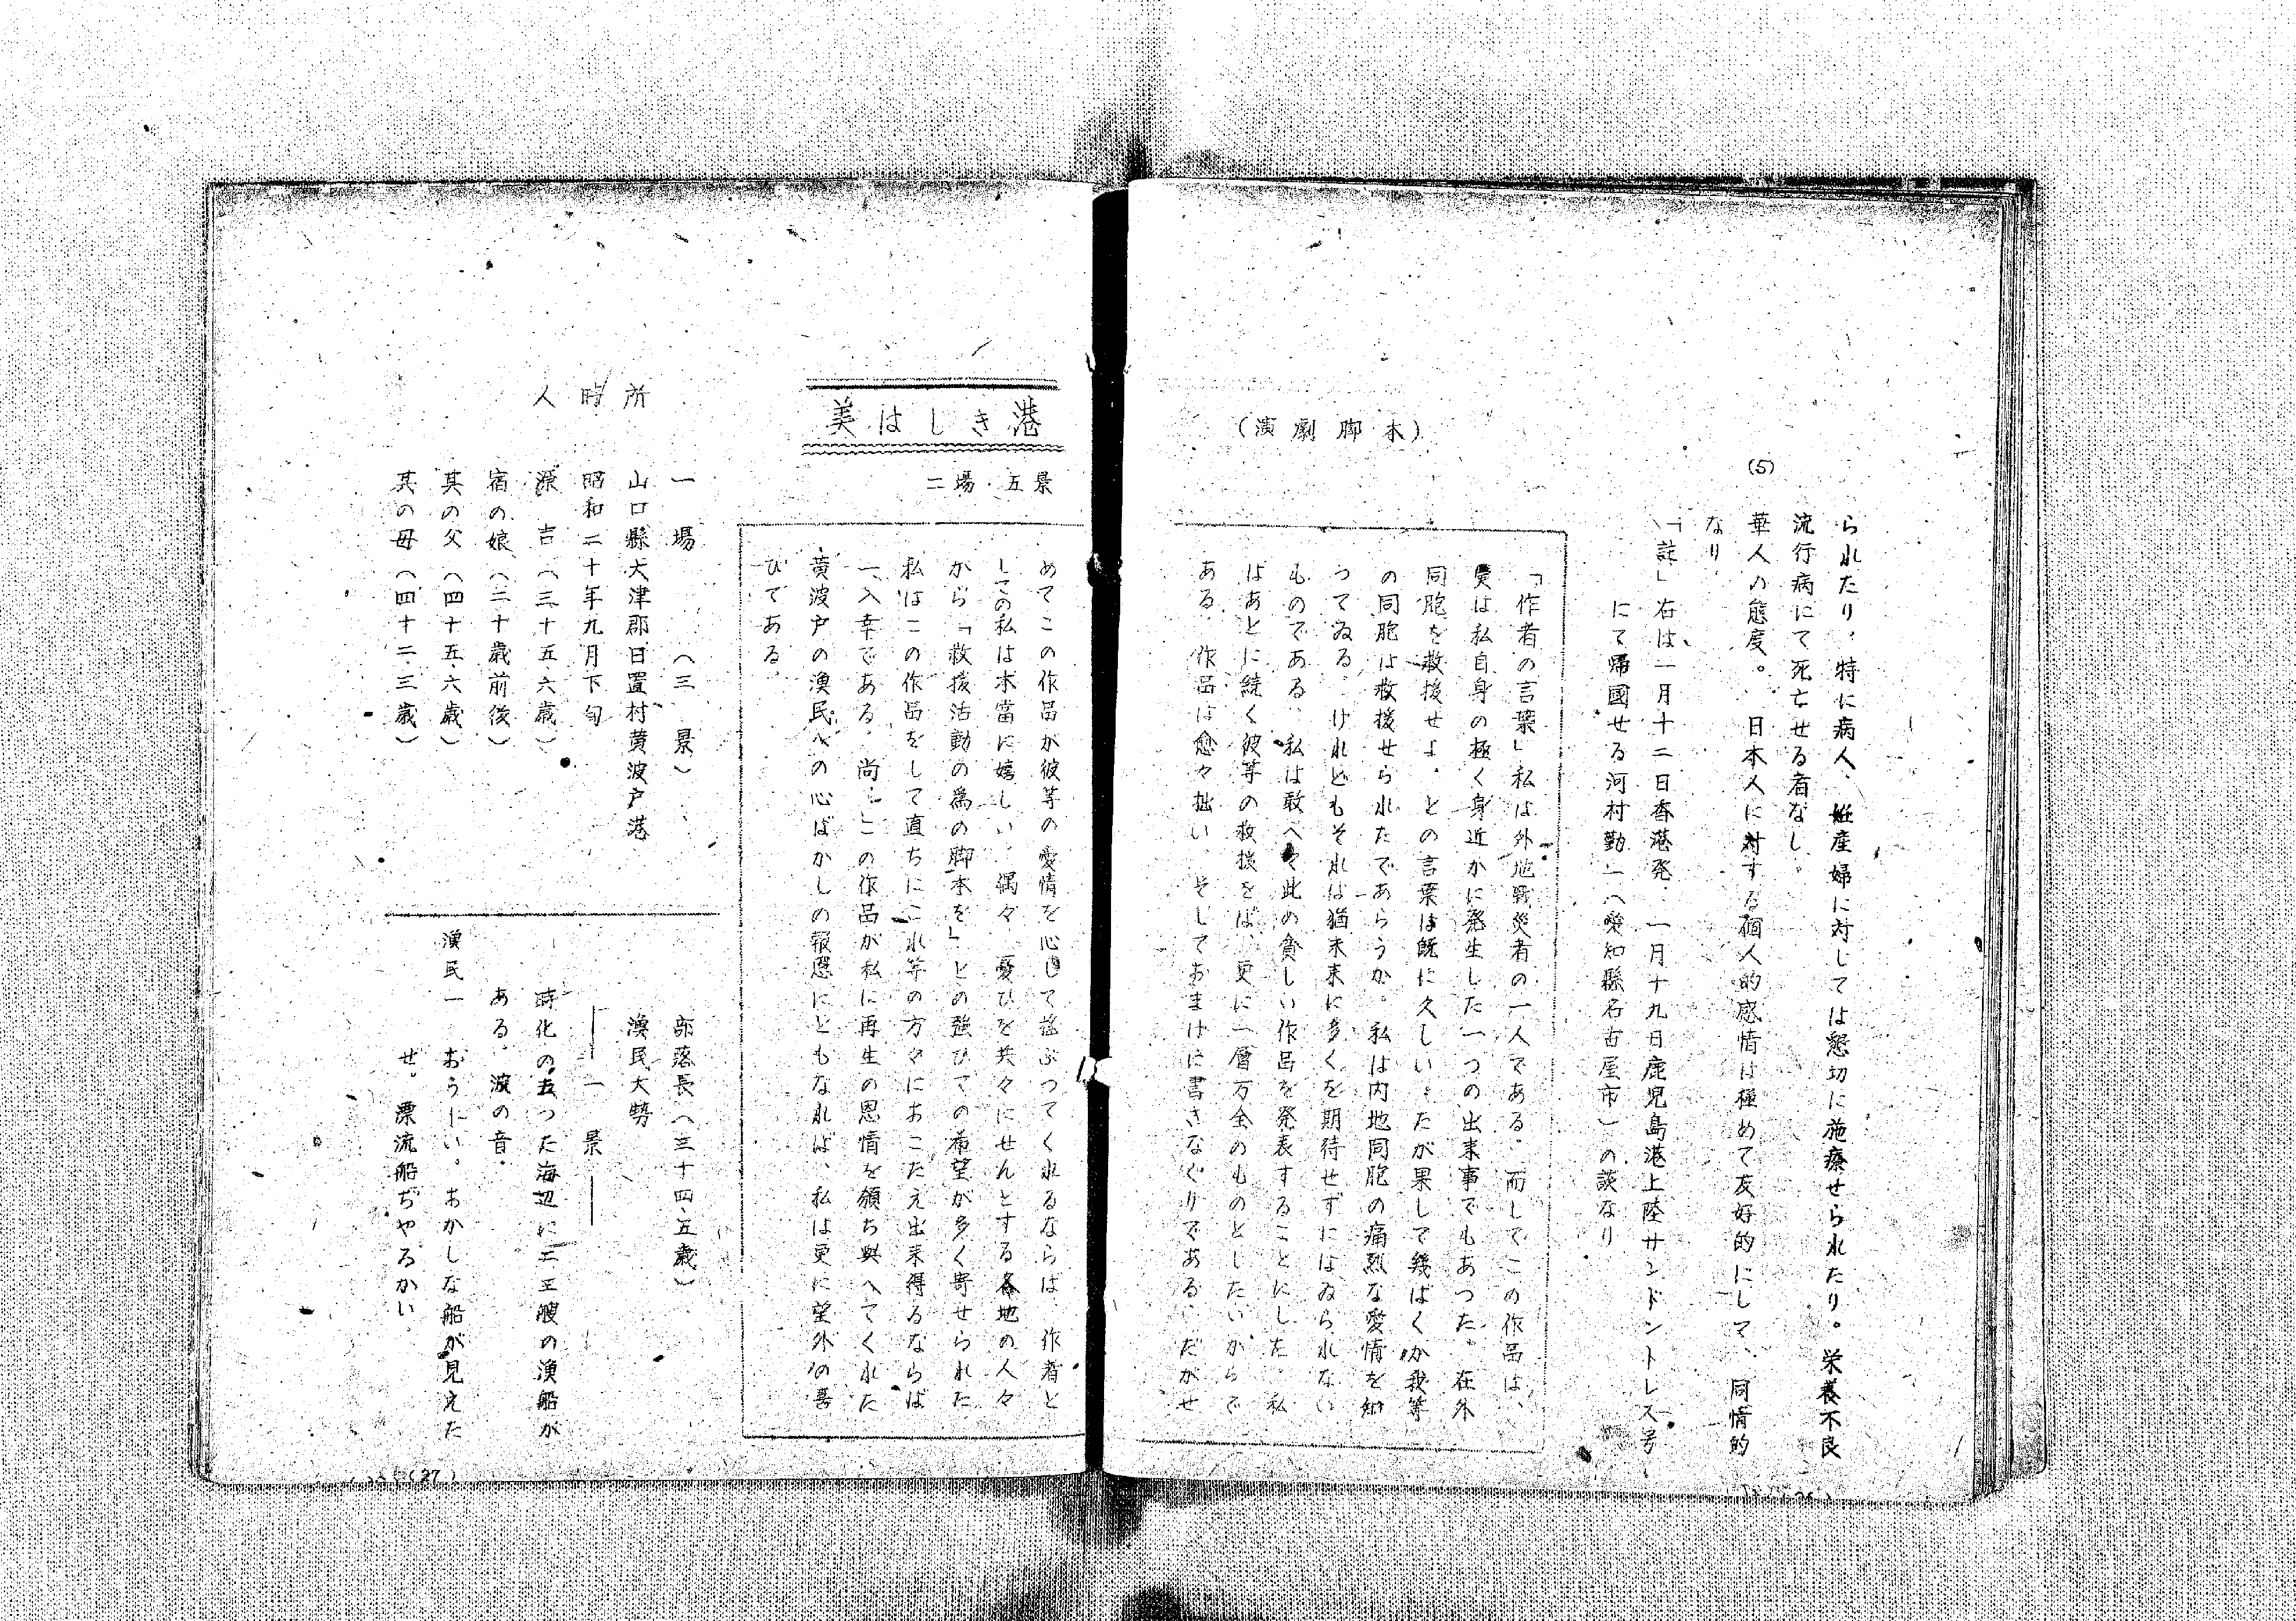 られたり。特に病人、姙産婦に対しては懇切に施療せられたり。栄養不良
流行病にて死亡せる者なし。
(5)
華人の態度。 日本人に対する個人的感情は極めて友好的にして、同情的
なり。
「註」右は一月十二日香港発、一月十九日鹿児島港上陸サンドントレス号
にて帰國せる河村勤一(愛知縣名古屋市)の談なり
(演劇脚本)
「作者の言葉」私は外地戰災者の一人である。而してこの作品は、
實は私自身の極く身近かに発生した一つの出来事でもあつた。在外
同胞を救援せよ。との言葉は既に久しい。だが果して幾ばくか我等
の同胞は救援せられたであらうか。私は内地同胞の痛烈な愛情を知
つてゐる。けれどもそれは猶未来に多くを期待せずにはゐられない
ものである。私は敢へて此の貧しい作品を発表することにした。私
はあとに続く彼等の救援をば、更に一層万全のものとしたいからで
ある。作品は愈々拙い。そしておまけに書きなぐりである。だがせ
めてこの作品が彼等の愛情を心して揺ぶつてくれるならば、作者と
しての私は本當に嬉しい。偶々、憂ひを共々にせんとする各地の人々
から「救援活動の為の脚本を」との強ひての希望が多く寄せられた
私はこの作品をして直ちにこれ等の方々におこたえ出来得るならば
一入幸である。尚、この作品が私に再生の恩情を頒ち與へてくれた
黄波戸の漁民への心ばかしの報恩にともなれば、私は更に望外の喜
びである。
美はしき港
二場・五景
一場 (三景)
所 山口縣大津郡日置村黄波戸港
時 昭和二十年九月下旬
人 源吉(三十五、六歳)
宿の娘(二十歳前後)
其の父(四十五、六歳)
其の母(四十二、三歳)
部落長(三十四、五歳)
漁民大勢
――一景――
時化の立つた海辺に二三艘の漁船が
ある。波の音。
漁民一 おうーい。おかしな船が見えた
ぜ。漂流船ぢやろかい
(27)